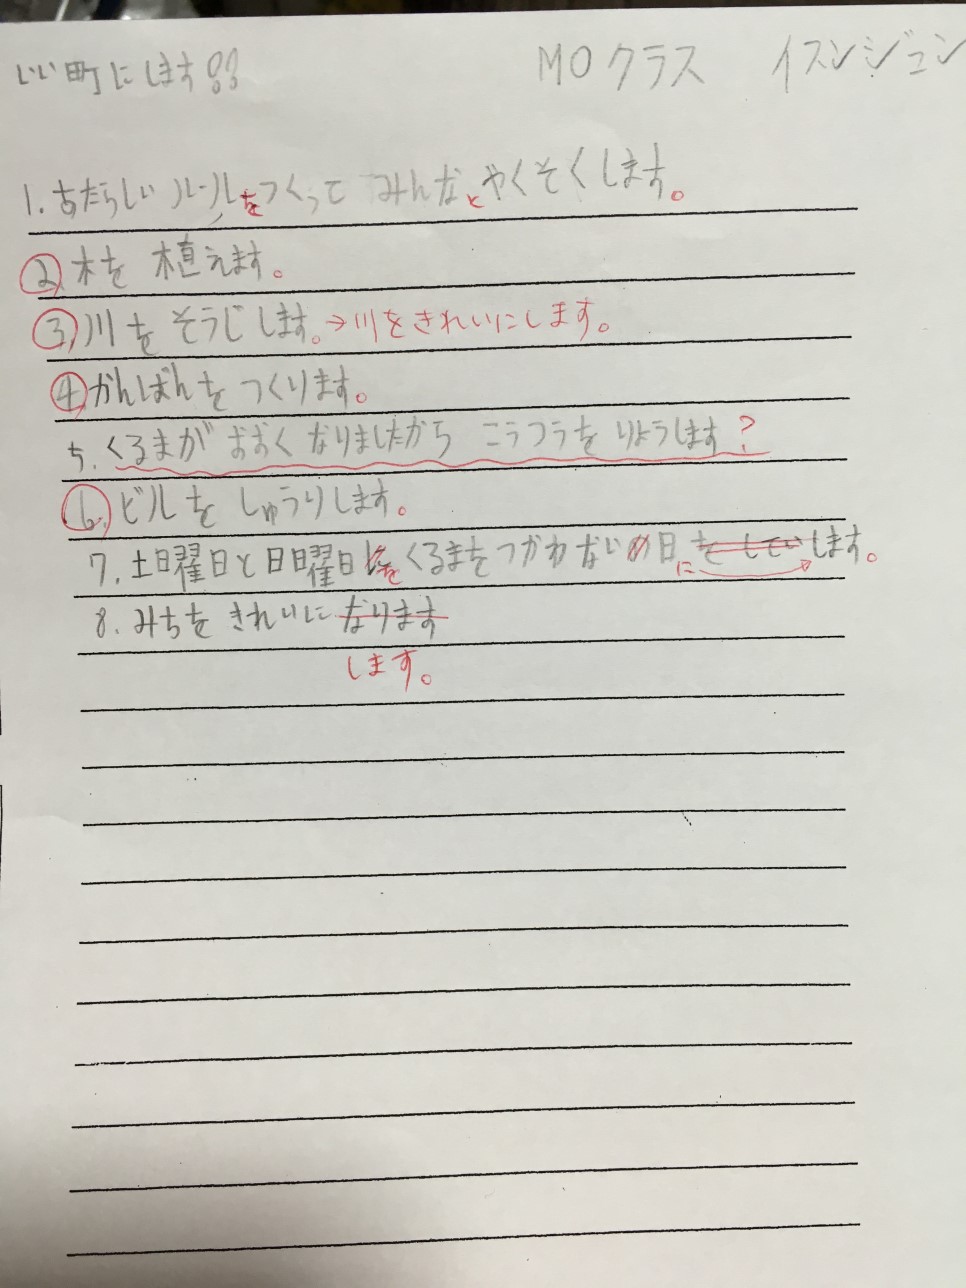 いい町にします!!
MOクラス イスンジュン
1.あたらしいルールをつくって みんなとやくそくします。
2.木を 植えます。
3.川を そうじします。→川をきれいにします。
4.かんばんを つくります。
5.くるまが おおく なりましたから こうつうを りようします?
6.ビルを しゅうりします。
7.土曜日と日曜日を くるまを つかわない日にをしていします。
8.みちを きれいに なります
します。